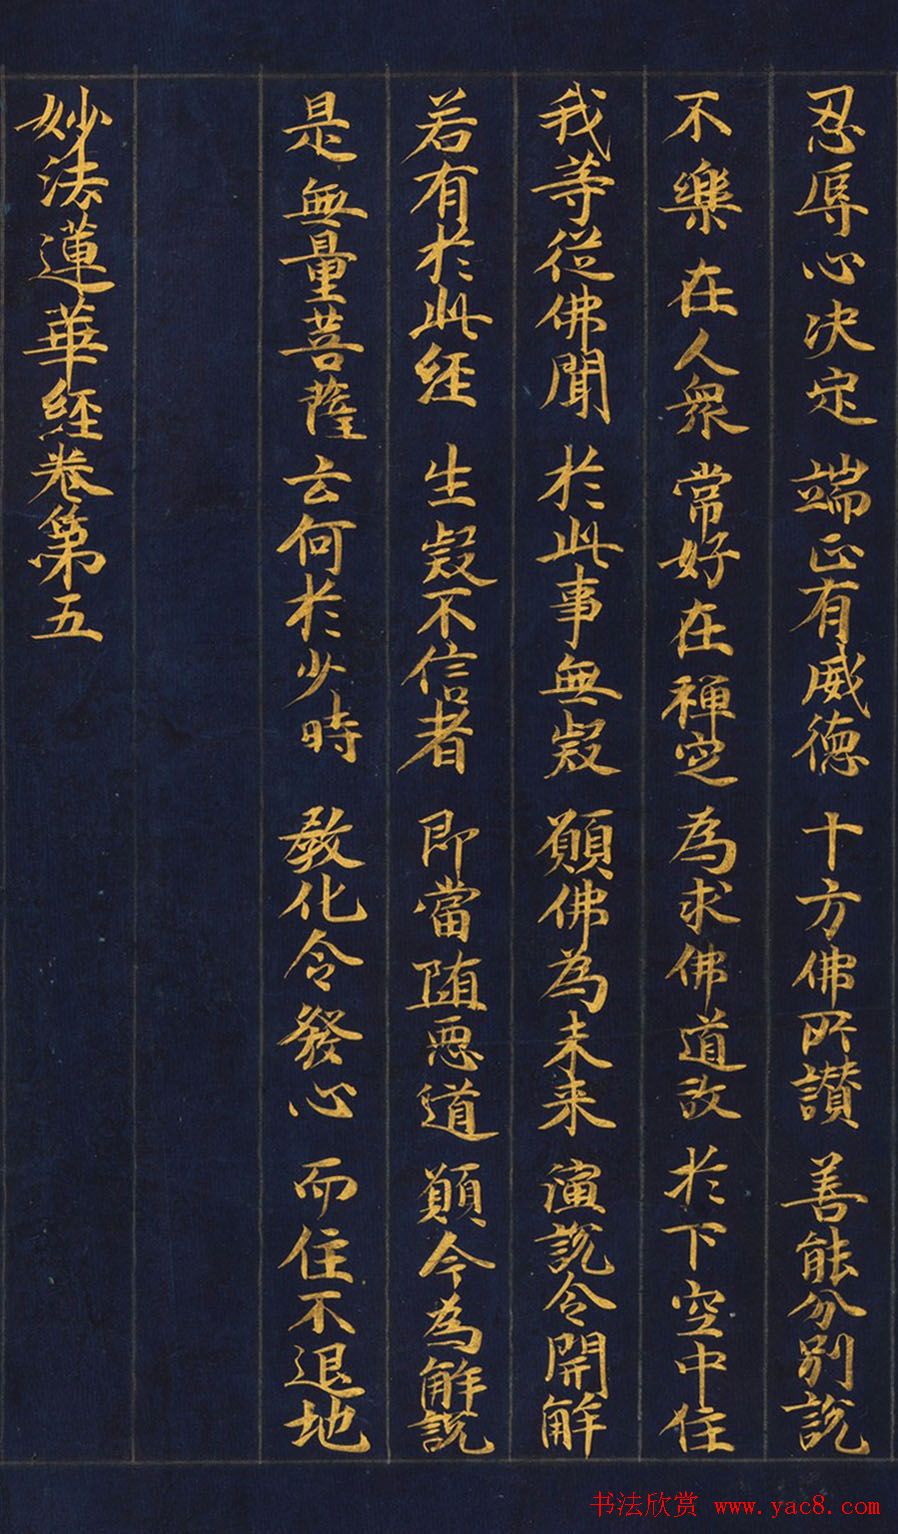 忍辱心决定 端正有威德 十方佛所讃 善能分別說
不樂在人衆 常好在禪定 為求佛道故 於下空中住
我等從佛聞 於此事無疑 願佛為未来 演說令開解
若有於此經 生疑不信者 即當随惡道 願今為解說
是無量菩薩 云何於少時 教化令發心 而住不退地
妙法蓮華經卷第五
书法欣赏 www.yac8.com